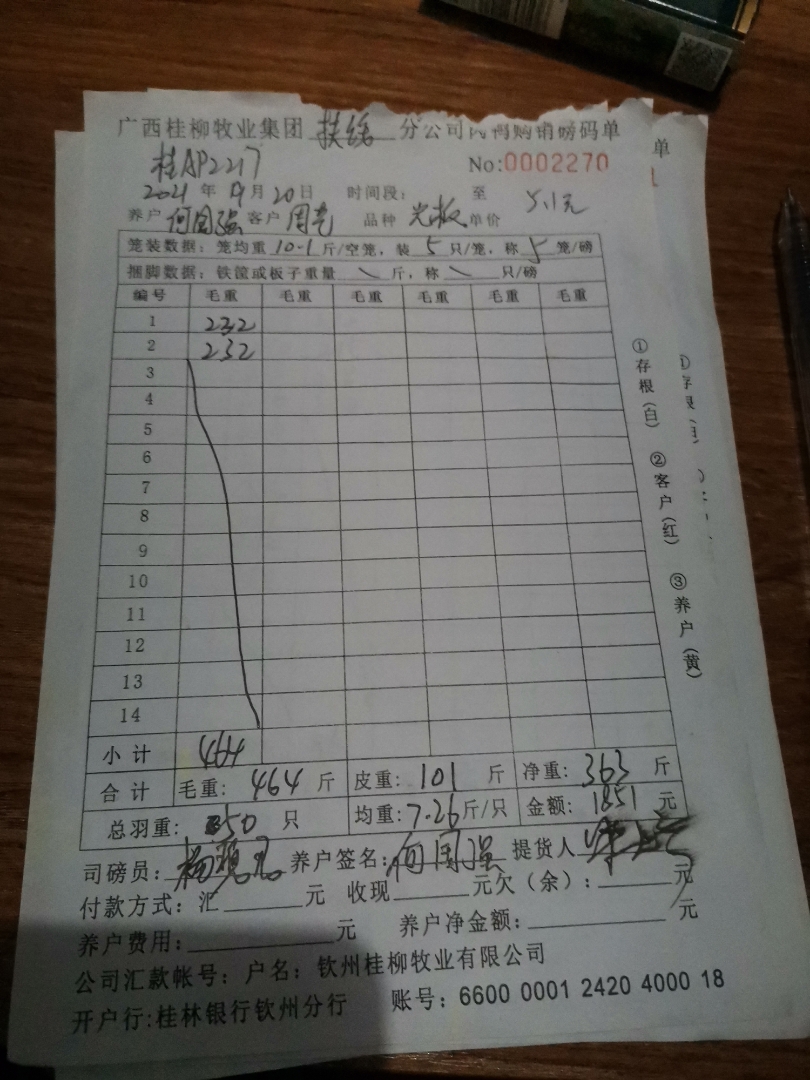 广西桂柳牧业集团 扶绥 分公司肉鸭购销磅码单
桂AP2217
No:0002270
2021 年 9 月 20 日 时间段: 至 5.1元
养户 何国强 客户 周 品种 光板 单价
笼装数据: 笼均重 10.1 斤/空笼, 装 5 只/笼, 称 5 笼/磅
捆脚数据: 铁筐或板子重量 \ 斤, 称 \ 只/磅
编号 毛重 毛重 毛重 毛重 毛重 毛重
1 232
2 232
3
4
5
6
7
8
9
10
11
12
13
14
小计 464
合计 毛重: 464 斤 皮重: 101 斤 净重: 363 斤
总羽重: 50 只 均重: 7.26 斤/只 金额: 1851 元
司磅员: 杨 养户签名: 何国强 提货人
付款方式: 汇 元 收现 元欠(余): 元
养户费用: 元 养户净金额: 元
公司汇款帐号: 户名: 钦州桂柳牧业有限公司
开户行:桂林银行钦州分行 账号: 6600 0001 2420 4000 18
①存根(白) ②客户(红) ③养户(黄)
单